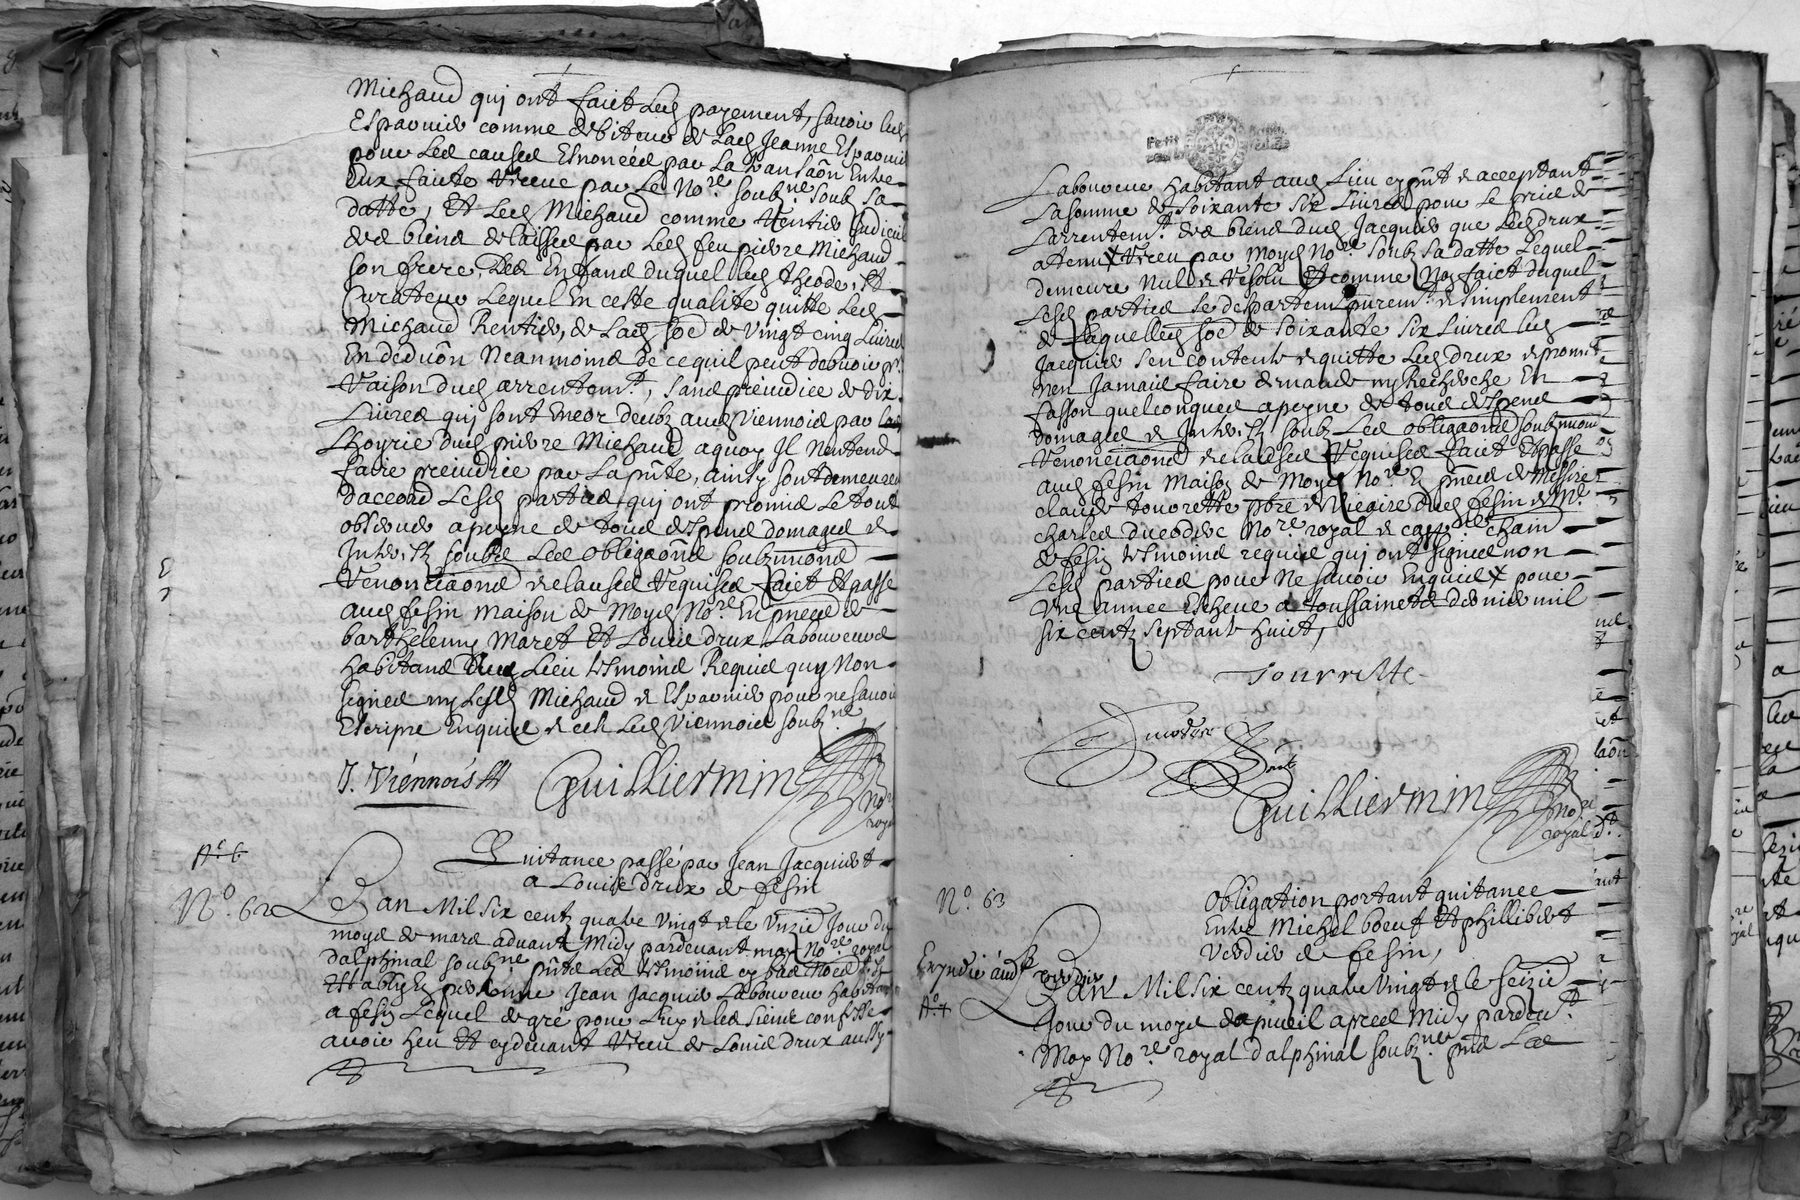 Michaud qui ont faict led payement, savoir led
Esparvier comme debiteur de lad Jeanne Esparvier
pour les causes enoncées par la transaôn entre
eux faite receue par le No.re soub.ne soub sa
datte, Et led Michaud comme rentier judiciel
des biens delaissés par led feu pierre Michaud
son frere, des enfans duquel led theode, est
Curateur lequel en ceste qualité quitte led
Michaud Rentier, de lad soê de vingt cinq livres
En deduôn neanmoins de ce quil peut debvoir p.r
raison dud arrentem.t, sans prejudice de dix
livres qui sont encor deubz aud Viennois par lad
hoyrie dud pierre Michaud a quoy Il nentend
faire prejudice par la pñte, ainsy sont demeurés
daccord lesd parties, qui ont promis le tout
observer a peyne de tous despens domages et
Inter.tz soubz les obligaôns soubzmiôns
renonciaôns et clauses requises faict et passé
aud fesin maison de Moyd No.re En pñce de
barthelemy Maret et Louis drux laboureurs
habitans dud lieu tesmoins Requis quy non
signés ny lesd Michaud et Esparvier pour ne savoir
Escripre Enquis et led Viennois soubz.né
J. Viennois
Guilliermin No.re
royal
A.e 6
Quitance passé par Jean Jacquier
a Louis drux de fesin
N.o 62
Lan Mil six centz quatre vingt et le unzie jour du
moys de mars advant midy pardevant moy No.re royal
dalphinal soub.né pñts les tesmoins
estably En personne Jean Jacquier laboureur habitant
a fesin Lequel de gré pour luy et les siens confesse
avoir heu et cy devant receu de Louis drux aussy
laboureur habitant aud lieu cy pñt et acceptant
la somme de soixante six livres pour le prix de
larrentem.t des biens dud Jacquier que led drux
a tenu receu par Moyd No.re soub sa datte lequel
demeure nul et resolu Et comme non faict duquel
lesd parties se despartent purem.t et simplement
de laquelle soê de soixante six livres led
Jacquier sen contente et quitte led drux et promet
nen jamais faire demande ny Recherche En
fasson quelconques a peyne de tous despens
domages et Inter.tz soubz les obligaôns soubzmiôns
renonciaôns et clauses requises faict et passé
aud fesin maison de Moyd No.re En pñce de Messire
claude tourrette pbre et vicaire dud fesin et M.e
charles ducodere No.re royal et
de fesin tesmoins requis qui ont signés non
lesd parties pour ne savoir Enquis pour
une année Escheue a toussainctz dernier mil
six centz septante huict,
Tourrette
Guilliermin No.re
royal d.t
N.o 63
Obligation portant quitance
Entre Michel boeuf et phillibert
verdier de fesin,
Expedié aud verdier
A.e 7
Lan Mil six centz quatre vingt et le seizie
Jour du moys dapvril apres Midy pardev.t
Moy No.re royal dalphinal soubz.né pñts les